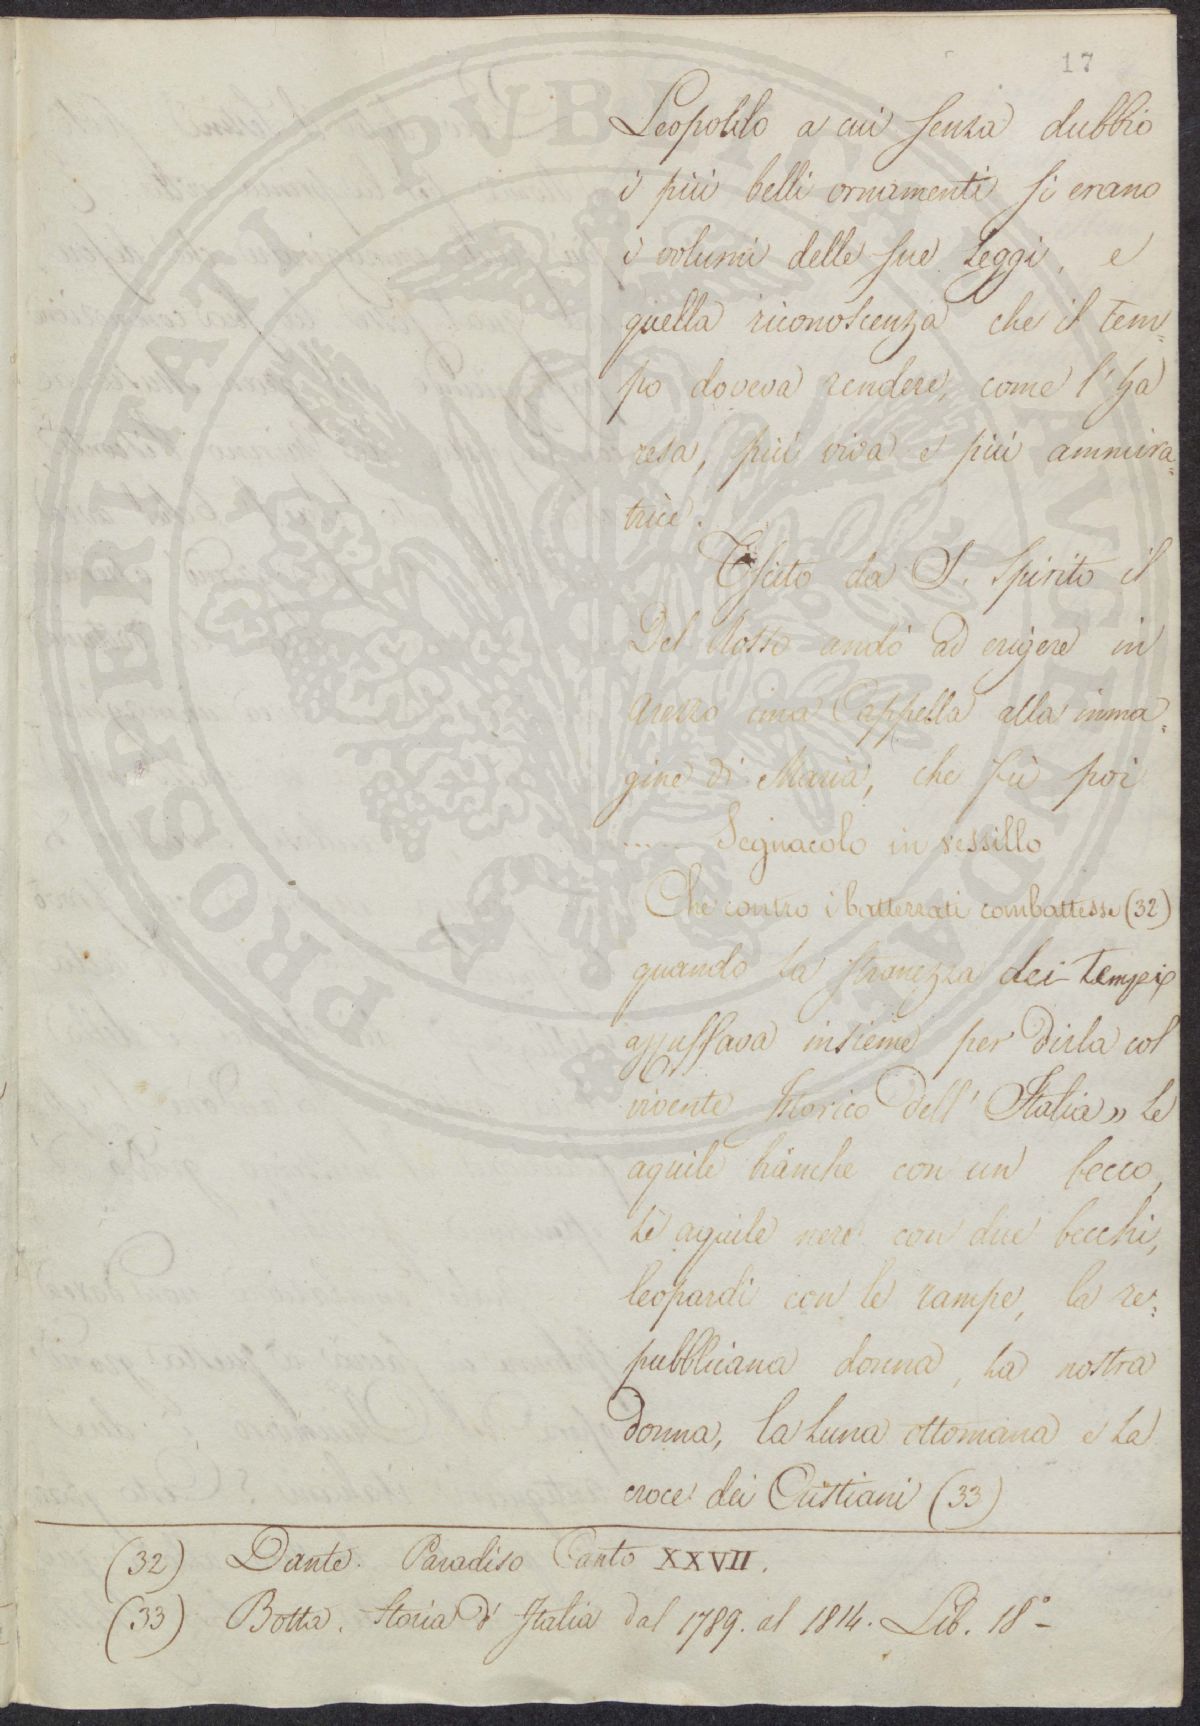 17
Leopoldo a cui senza dubbio
i più belli ornamenti si erano
i volumi delle sue Leggi, e
quella riconoscenza che il tem=
po doveva rendere, come l'ha
resa, più viva e più ammira=
trice.
Uscito da S. Spirito il
Del Rosso andò ad erigere in
Arezzo una Cappella alla imma=
gine di Maria, che fù poi
...... Segnacolo in vessillo
Che contro i battezzati combattesse (32)
quando la stranezza dei tempi
azzuffava insieme per dirla col
vivente Storico dell' Italia » Le
aquile bianche con un becco,
le aquile nere con due becchi,
leopardi con le rampe, la re=
pubblicana donna, la nostra
donna, la Luna ottomana e la
croce dei Cristiani (33)
(32) Dante. Paradiso Canto XXVII.
(33) Botta. Storia d' Italia dal 1789. al 1814. Lib. 18° -
PROSPERITATI PUBLICAE AUGENDAE